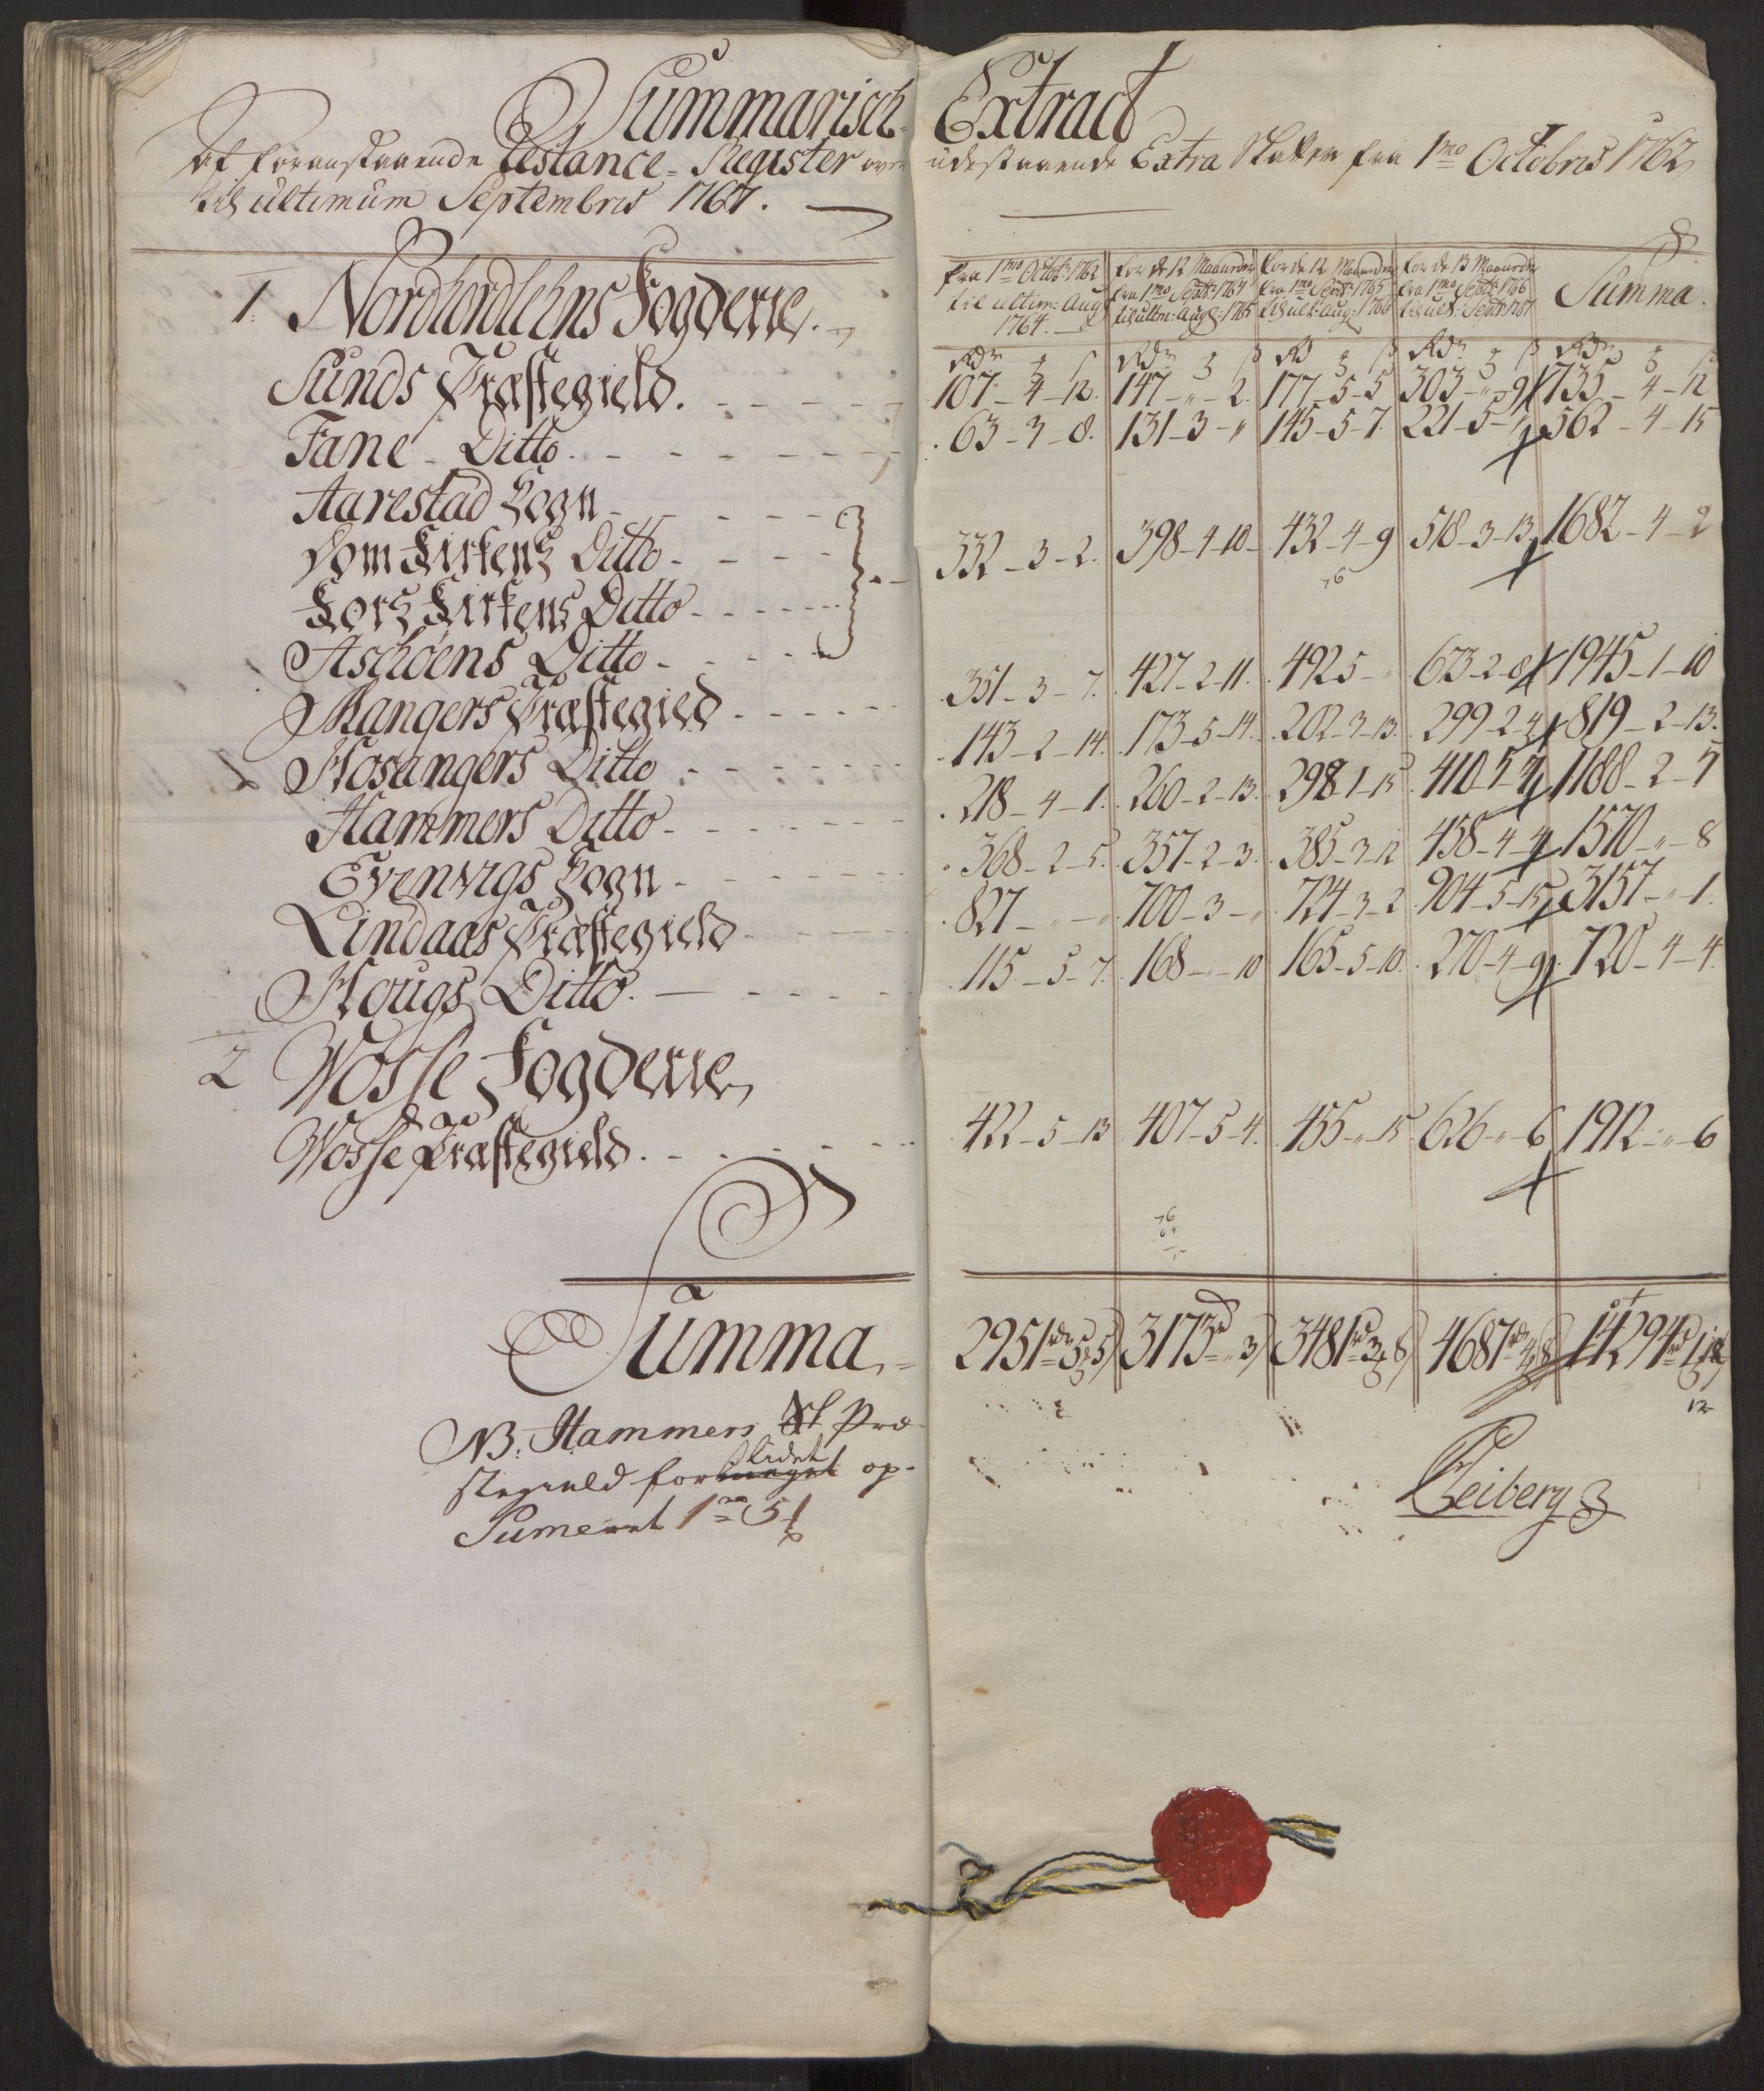 Summarisch Extract
Af foranstaaende Restance-Register over udestaaende Extra Skatten fra 1mo Octobris 1762
til ultimum Septembris 1767.
fra 1mo Octob: 1762 til ultim: Aug 1764. | for de 12 Maaneder fra 1mo Septb: 1764 til ultm: Aug: 1765 | for de 12 Maaneder fra 1mo Septb: 1765 til ult: Aug: 1766 | for de 13 Maaneder fra 1mo Septb: 1766 til ult: Septbr 1767 | Summa.
1. Nordhordlehns Fogderie.
Rdr ß | Rdr ß | Rd ß | Rdr ß | Rdr ß
Sunds Præstegield. 107-4-12. | 147-"-2. | 177-5-5 | 303-"-9 | 735-4-12
Fane Ditto. 63-3-8. | 131-3-" | 145-5-7. | 221-5-" | 562-4-15
Aarestad Sogn
Dom Kirkens Ditto 332-3-2. | 398-4-10 | 432-4-9 | 518-3-13 | 1682-4-2
Kors Kirkens Ditto
Aschøens Ditto 351-3-7. | 427-2-11. | 492 5-" | 673-2-8 | 1945-1-10
Mangers Præstegield 143-2-14. | 173-5-14. | 202-3-13. | 299-2-4 | 819-2-13.
Hosangers Ditto 218-4-1. | 260-2-13. | 298 1-15 | 410-5-4 | 1188-2-1
Hammers Ditto 368-2-5. | 357-2-3. | 385-3-12 | 458-4-4 | 1570-"-8
Evenvigs Sogn 827-"-" | 700-3-" | 724-3-2 | 904-5-15 | 3157-"-1.
Lindaas Præstegield 115-5-7. | 168-"-10 | 165-5-10. | 270-4-9 | 720-4-4.
Hougs Ditto.
2 Wosse Fogderie
Wosse Præstegield. 422-5-13 | 407-5-4. | 455-"-15 | 626-"-6 | 1912-"-6
Summa 2951 rdr 3 5 | 3173 rd " 3 | 3481 rd 3 8 | 4687 rdr 4 8 | 14294 rd 1 12
12
NB. Hammers Præ-
stegield for lidet op-
Sumeret 1 rd 5
Heiberg